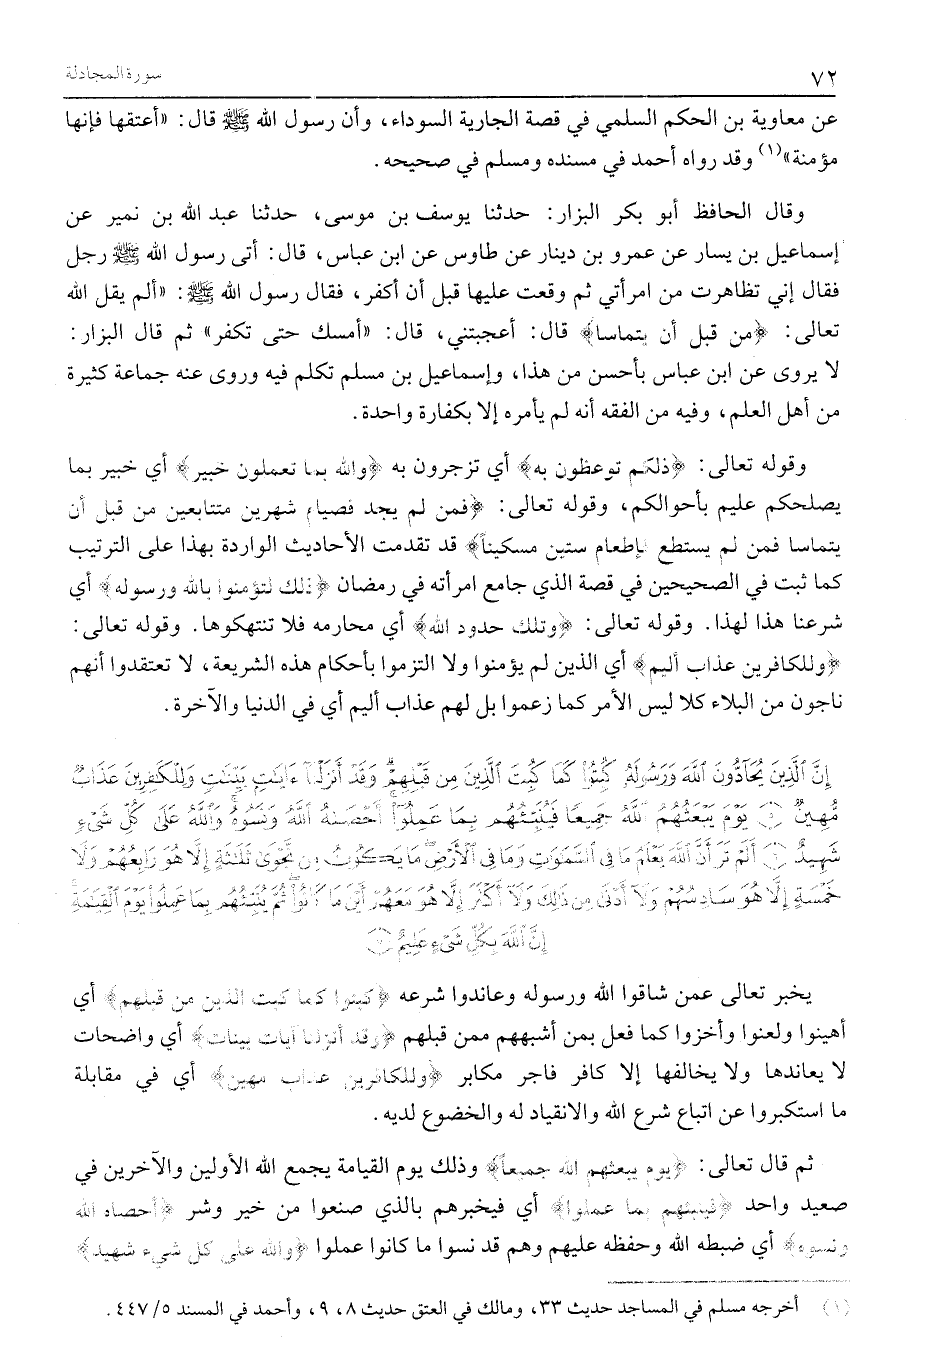 ٧٢ سورة المجادلة
عن معاوية بن الحكم السلمي في قصة الجارية السوداء، وأن رسول الله ﷺ قال: «أعتقها فإنها
مؤمنة»(١) وقد رواه أحمد في مسنده ومسلم في صحيحه.
وقال الحافظ أبو بكر البزار: حدثنا يوسف بن موسى، حدثنا عبد الله بن نمير عن
إسماعيل بن يسار عن عمرو بن دينار عن طاوس عن ابن عباس، قال: أتى رسول الله ﷺ رجل
فقال إني تظاهرت من امرأتي ثم وقعت عليها قبل أن أكفر، فقال رسول الله ﷺ: «ألم يقل الله
تعالى: ﴿من قبل أن يتماسا﴾ قال: أعجبتني، قال: «أمسك حتى تكفر» ثم قال البزار:
لا يروى عن ابن عباس بأحسن من هذا، وإسماعيل بن مسلم تكلم فيه وروى عنه جماعة كثيرة
من أهل العلم، وفيه من الفقه أنه لم يأمره إلا بكفارة واحدة.
وقوله تعالى: ﴿ذلكم توعظون به﴾ أي تزجرون به ﴿والله بما تعملون خبير﴾ أي خبير بما
يصلحكم عليم بأحوالكم، وقوله تعالى: ﴿فمن لم يجد فصيام شهرين متتابعين من قبل أن
يتماسا فمن لم يستطع فإطعام ستين مسكيناً﴾ قد تقدمت الأحاديث الواردة بهذا على الترتيب
كما ثبت في الصحيحين في قصة الذي جامع امرأته في رمضان ﴿ذلك لتؤمنوا بالله ورسوله﴾ أي
شرعنا هذا لهذا. وقوله تعالى: ﴿وتلك حدود الله﴾ أي محارمه فلا تنتهكوها. وقوله تعالى:
﴿وللكافرين عذاب أليم﴾ أي الذين لم يؤمنوا ولا التزموا بأحكام هذه الشريعة، لا تعتقدوا أنهم
ناجون من البلاء كلا ليس الأمر كما زعموا بل لهم عذاب أليم أي في الدنيا والآخرة.
إِنَّ ٱلَّذِينَ يُحَآدُّونَ ٱللَّهَ وَرَسُولَهُۥ كُبِتُوا۟ كَمَا كُبِتَ ٱلَّذِينَ مِن قَبْلِهِمْ ۚ وَقَدْ أَنزَلْنَآ ءَايَٰتٍۭ بَيِّنَٰتٍ ۚ وَلِلْكَٰفِرِينَ عَذَابٌ
مُّهِينٌ ۝ يَوْمَ يَبْعَثُهُمُ ٱللَّهُ جَمِيعًا فَيُنَبِّئُهُم بِمَا عَمِلُوٓا۟ ۚ أَحْصَىٰهُ ٱللَّهُ وَنَسُوهُ ۚ وَٱللَّهُ عَلَىٰ كُلِّ شَىْءٍ
شَهِيدٌ ۝ أَلَمْ تَرَ أَنَّ ٱللَّهَ يَعْلَمُ مَا فِى ٱلسَّمَٰوَٰتِ وَمَا فِى ٱلْأَرْضِ ۖ مَا يَكُونُ مِن نَّجْوَىٰ ثَلَٰثَةٍ إِلَّا هُوَ رَابِعُهُمْ وَلَا
خَمْسَةٍ إِلَّا هُوَ سَادِسُهُمْ وَلَآ أَدْنَىٰ مِن ذَٰلِكَ وَلَآ أَكْثَرَ إِلَّا هُوَ مَعَهُمْ أَيْنَ مَا كَانُوا۟ ۖ ثُمَّ يُنَبِّئُهُم بِمَا عَمِلُوا۟ يَوْمَ ٱلْقِيَٰمَةِ ۚ
إِنَّ ٱللَّهَ بِكُلِّ شَىْءٍ عَلِيمٌ ۝
يخبر تعالى عمن شاقوا الله ورسوله وعاندوا شرعه ﴿كبتوا كما كبت الذين من قبلهم﴾ أي
أهينوا ولعنوا وأخزوا كما فعل بمن أشبههم ممن قبلهم ﴿وقد أنزلنا آيات بينات﴾ أي واضحات
لا يعاندها ولا يخالفها إلا كافر فاجر مكابر ﴿وللكافرين عذاب مهين﴾ أي في مقابلة
ما استكبروا عن اتباع شرع الله والانقياد له والخضوع لديه.
ثم قال تعالى: ﴿يوم يبعثهم الله جميعاً﴾ وذلك يوم القيامة يجمع الله الأولين والآخرين في
صعيد واحد ﴿فينبئهم بما عملوا﴾ أي فيخبرهم بالذي صنعوا من خير وشر ﴿أحصاه الله
ونسوه﴾ أي ضبطه الله وحفظه عليهم وهم قد نسوا ما كانوا عملوا ﴿والله على كل شيء شهيد﴾
(١) أخرجه مسلم في المساجد حديث ٣٣، ومالك في العتق حديث ٨، ٩، وأحمد في المسند ٥/٤٤٧.